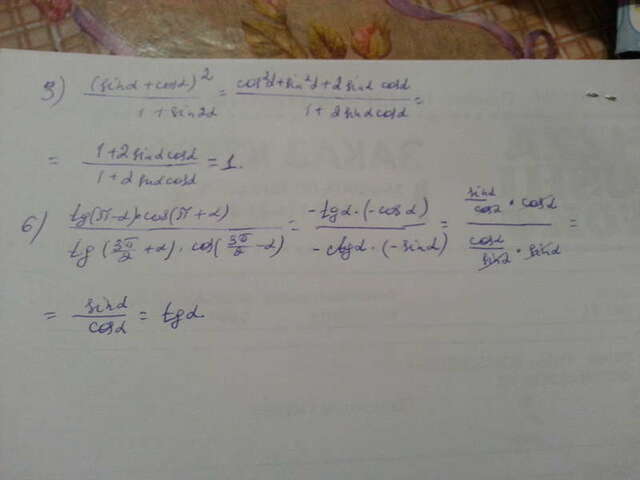 5) (sinα + cosα)² / (1 + sin2α) = (cos²α + sin²α + 2 sinα cosα) / (1 + 2 sinα cosα) =
= (1 + 2 sinα cosα) / (1 + 2 sinα cosα) = 1.
6) (tg(π - α) · cos(π + α)) / (tg(3π/2 + α) · cos(3π/2 - α)) = (-tgα · (-cosα)) / (-ctgα · (-sinα)) = (sinα/cosα · cosα) / (cosα/sinα · sinα) =
= sinα / cosα = tgα.
ЗАКАЗ